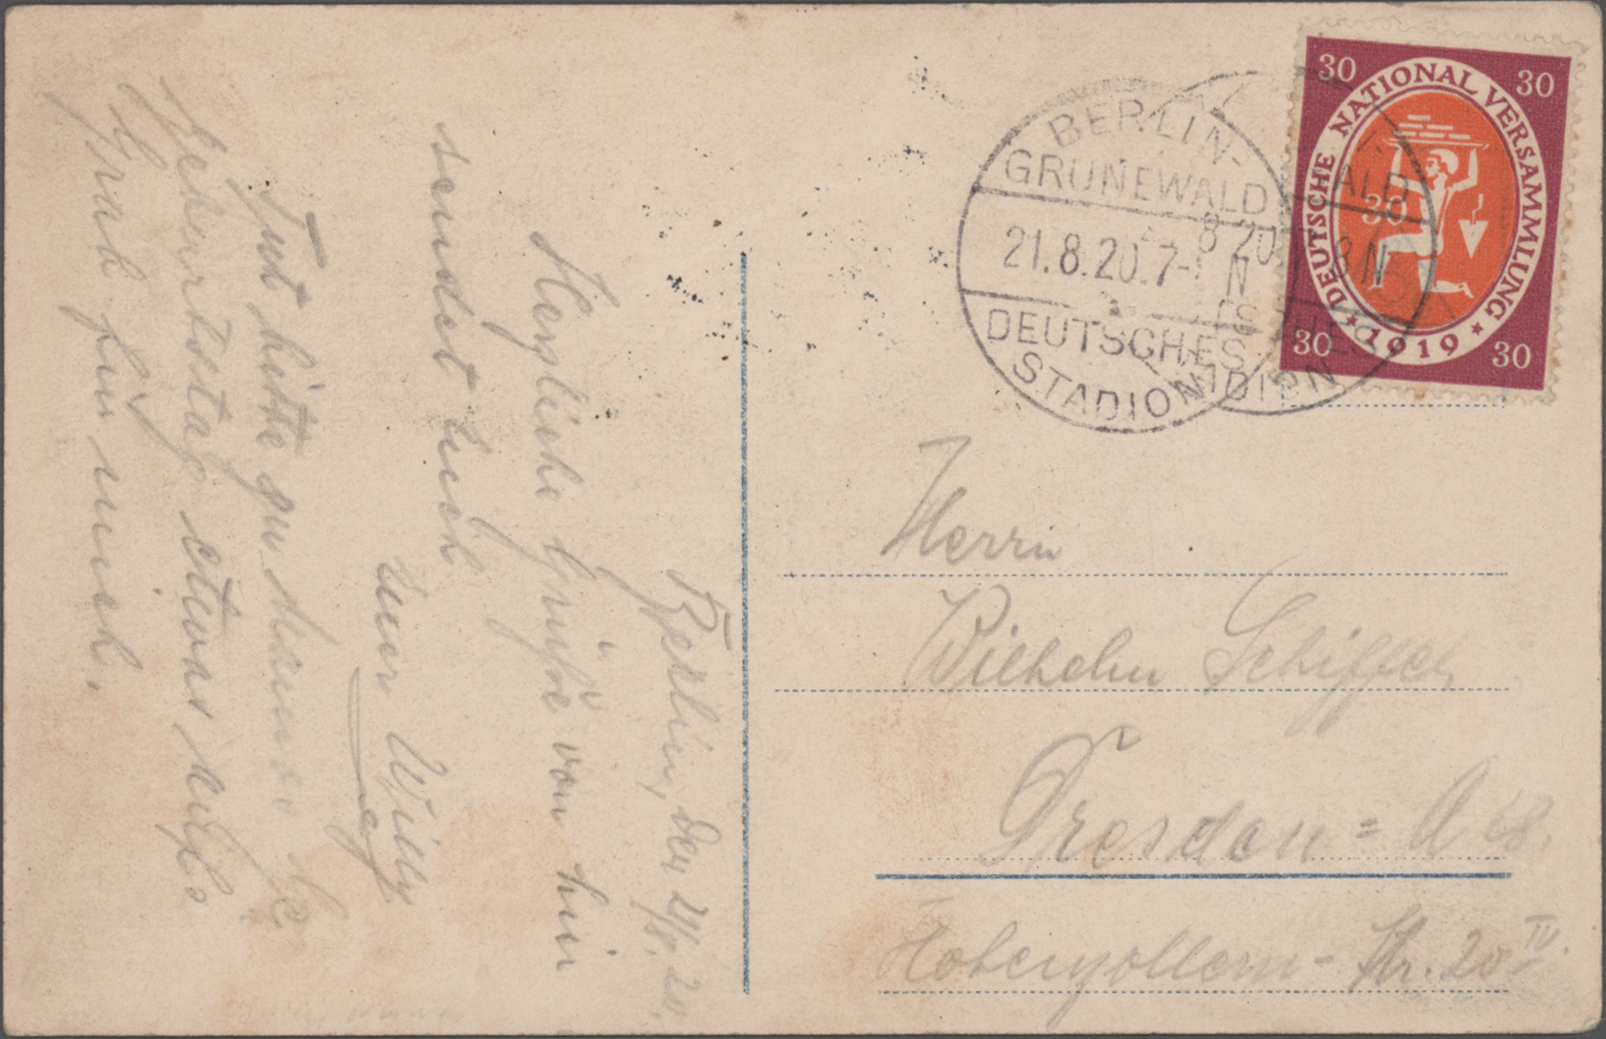 30 30
DEUTSCHE NATIONAL VERSAMMLUNG
30
30 30
★ 1919 ★
BERLIN-
GRUNEWALD
21.8.20.7-8N
DEUTSCHES
STADION
Berlin, den 21/8. 20.
Herzliche Grüße von hier
sendet Euch
Euer Willy
Tut bitte zu Mamas Ge
burtstag etwas aufs
Grab für mich.
Herrn
Wilhelm Schiffel
Dresden = A 28.
Hohenzollern- Str. 20 IV.